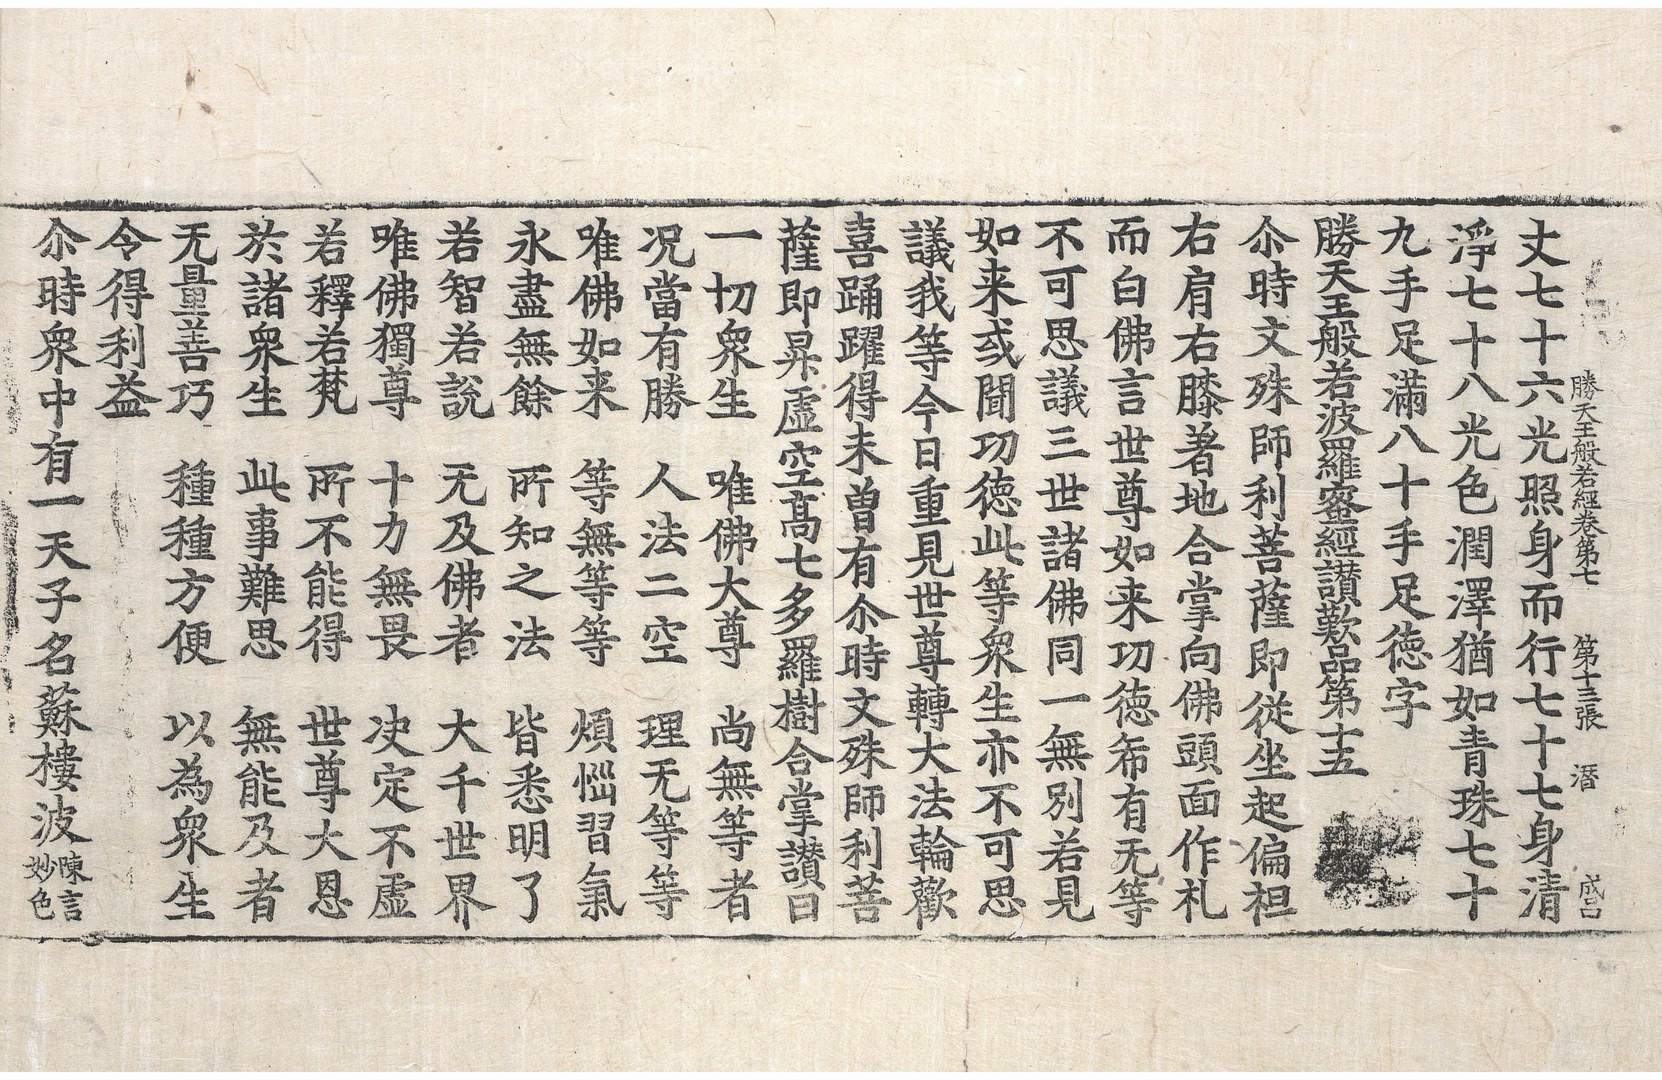 勝天王般若經卷第七　第十三張　潛
丈七十六光照身而行七十七身清
淨七十八光色潤澤猶如青珠七十
九手足滿八十手足德字
勝天王般若波羅蜜經讃歎品第十五
尒時文殊師利菩薩即從坐起偏袒
右肩右膝著地合掌向佛頭面作礼
而白佛言世尊如来功德希有无等
不可思議三世諸佛同一無別若見
如来或聞功德此等衆生亦不可思
議我等今日重見世尊轉大法輪歡
喜踊躍得未曽有尒時文殊師利菩
薩即昇虛空高七多羅樹合掌讃曰
一切衆生　唯佛大尊　尚無等者
况當有勝　人法二空　理无等等
唯佛如来　等無等等　煩惱習氣
永盡無餘　所知之法　皆悉明了
若智若說　无及佛者　大千世界
唯佛獨尊　十力無畏　决定不虛
若釋若梵　所不能得　世尊大恩
於諸衆生　此事難思　無能及者
无量善巧　種種方便　以為衆生
令得利益
尒時衆中有一天子名蘇樓波陳言妙色